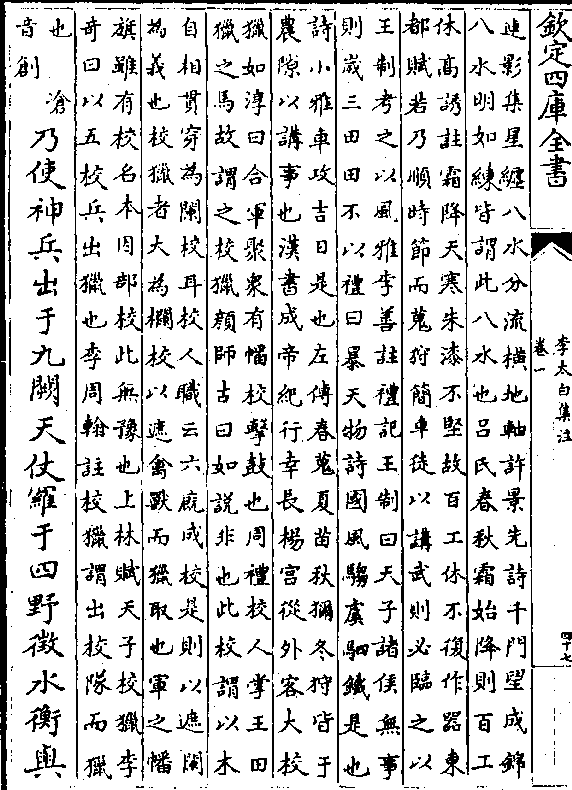 欽定四庫全書
李太白集注
卷一
四十七
連影集星纏八水分流橫地軸許景先詩千門望成錦
八水明如練皆謂此八水也呂氏春秋霜始降則百工
休高誘註霜降天寒朱漆不堅故百工休不復作器東
都賦若乃順時節而蒐狩簡車徒以講武則必臨之以
王制考之以風雅李善註禮記王制曰天子諸侯無事
則歲三田田不以禮曰暴天物詩國風騶虞駟鐵是也
詩小雅車攻吉日是也左傳春蒐夏苗秋獮冬狩皆于
農隙以講事也漢書成帝紀行幸長楊宮從外客大校
獵如淳曰合軍聚衆有幡校擊鼓也周禮校人掌王田
獵之馬故謂之校獵顔師古曰如說非也此校謂以木
自相貫穿為闌校耳校人職云六廐成校是則以遮闌
為義也校獵者大為欄校以遮禽獸而獵取也軍之幡
旗雖有校名本因部校此無豫也上林賦天子校獵李
奇曰以五校兵出獵也李周翰註校獵謂出校隊而獵
也
音創滄
乃使神兵出于九闕天仗羅于四野徵水衡與